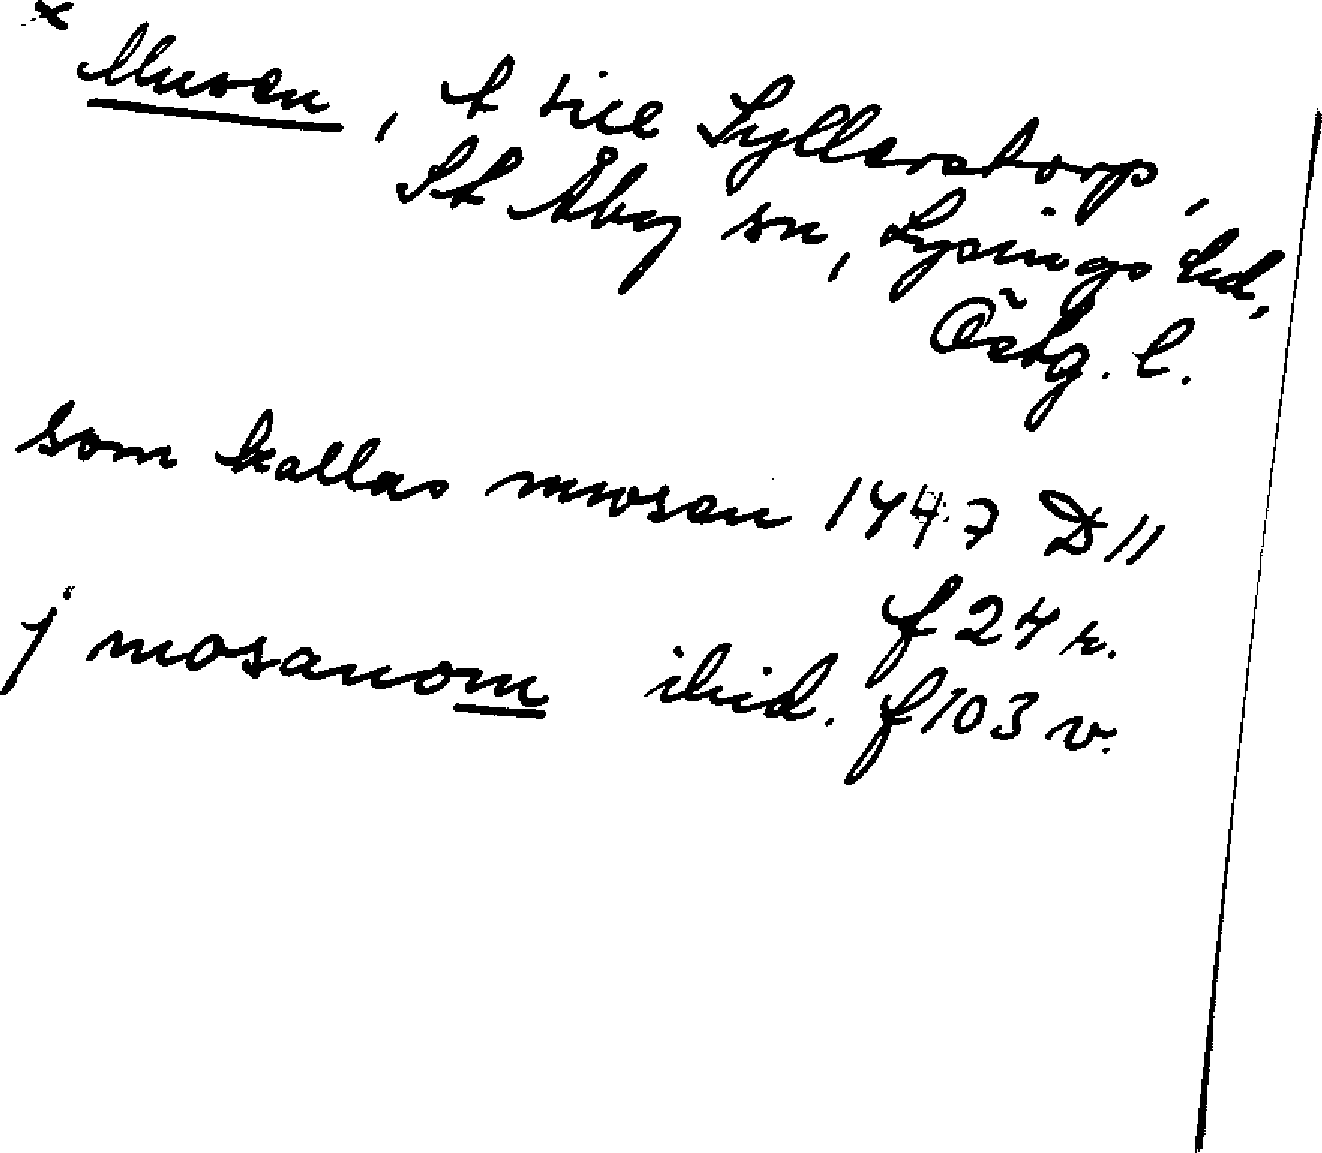 × Musen, t till Syllerstorp,
St Åby sn, Lysings hd,
Östg. l.
som kallas mwsen 1447 D 11
f 24 r.
j mosanom ibid. f 103 v.